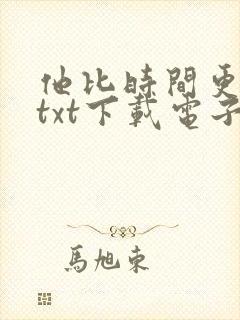 他比時間更
txt下載電子
馬旭東